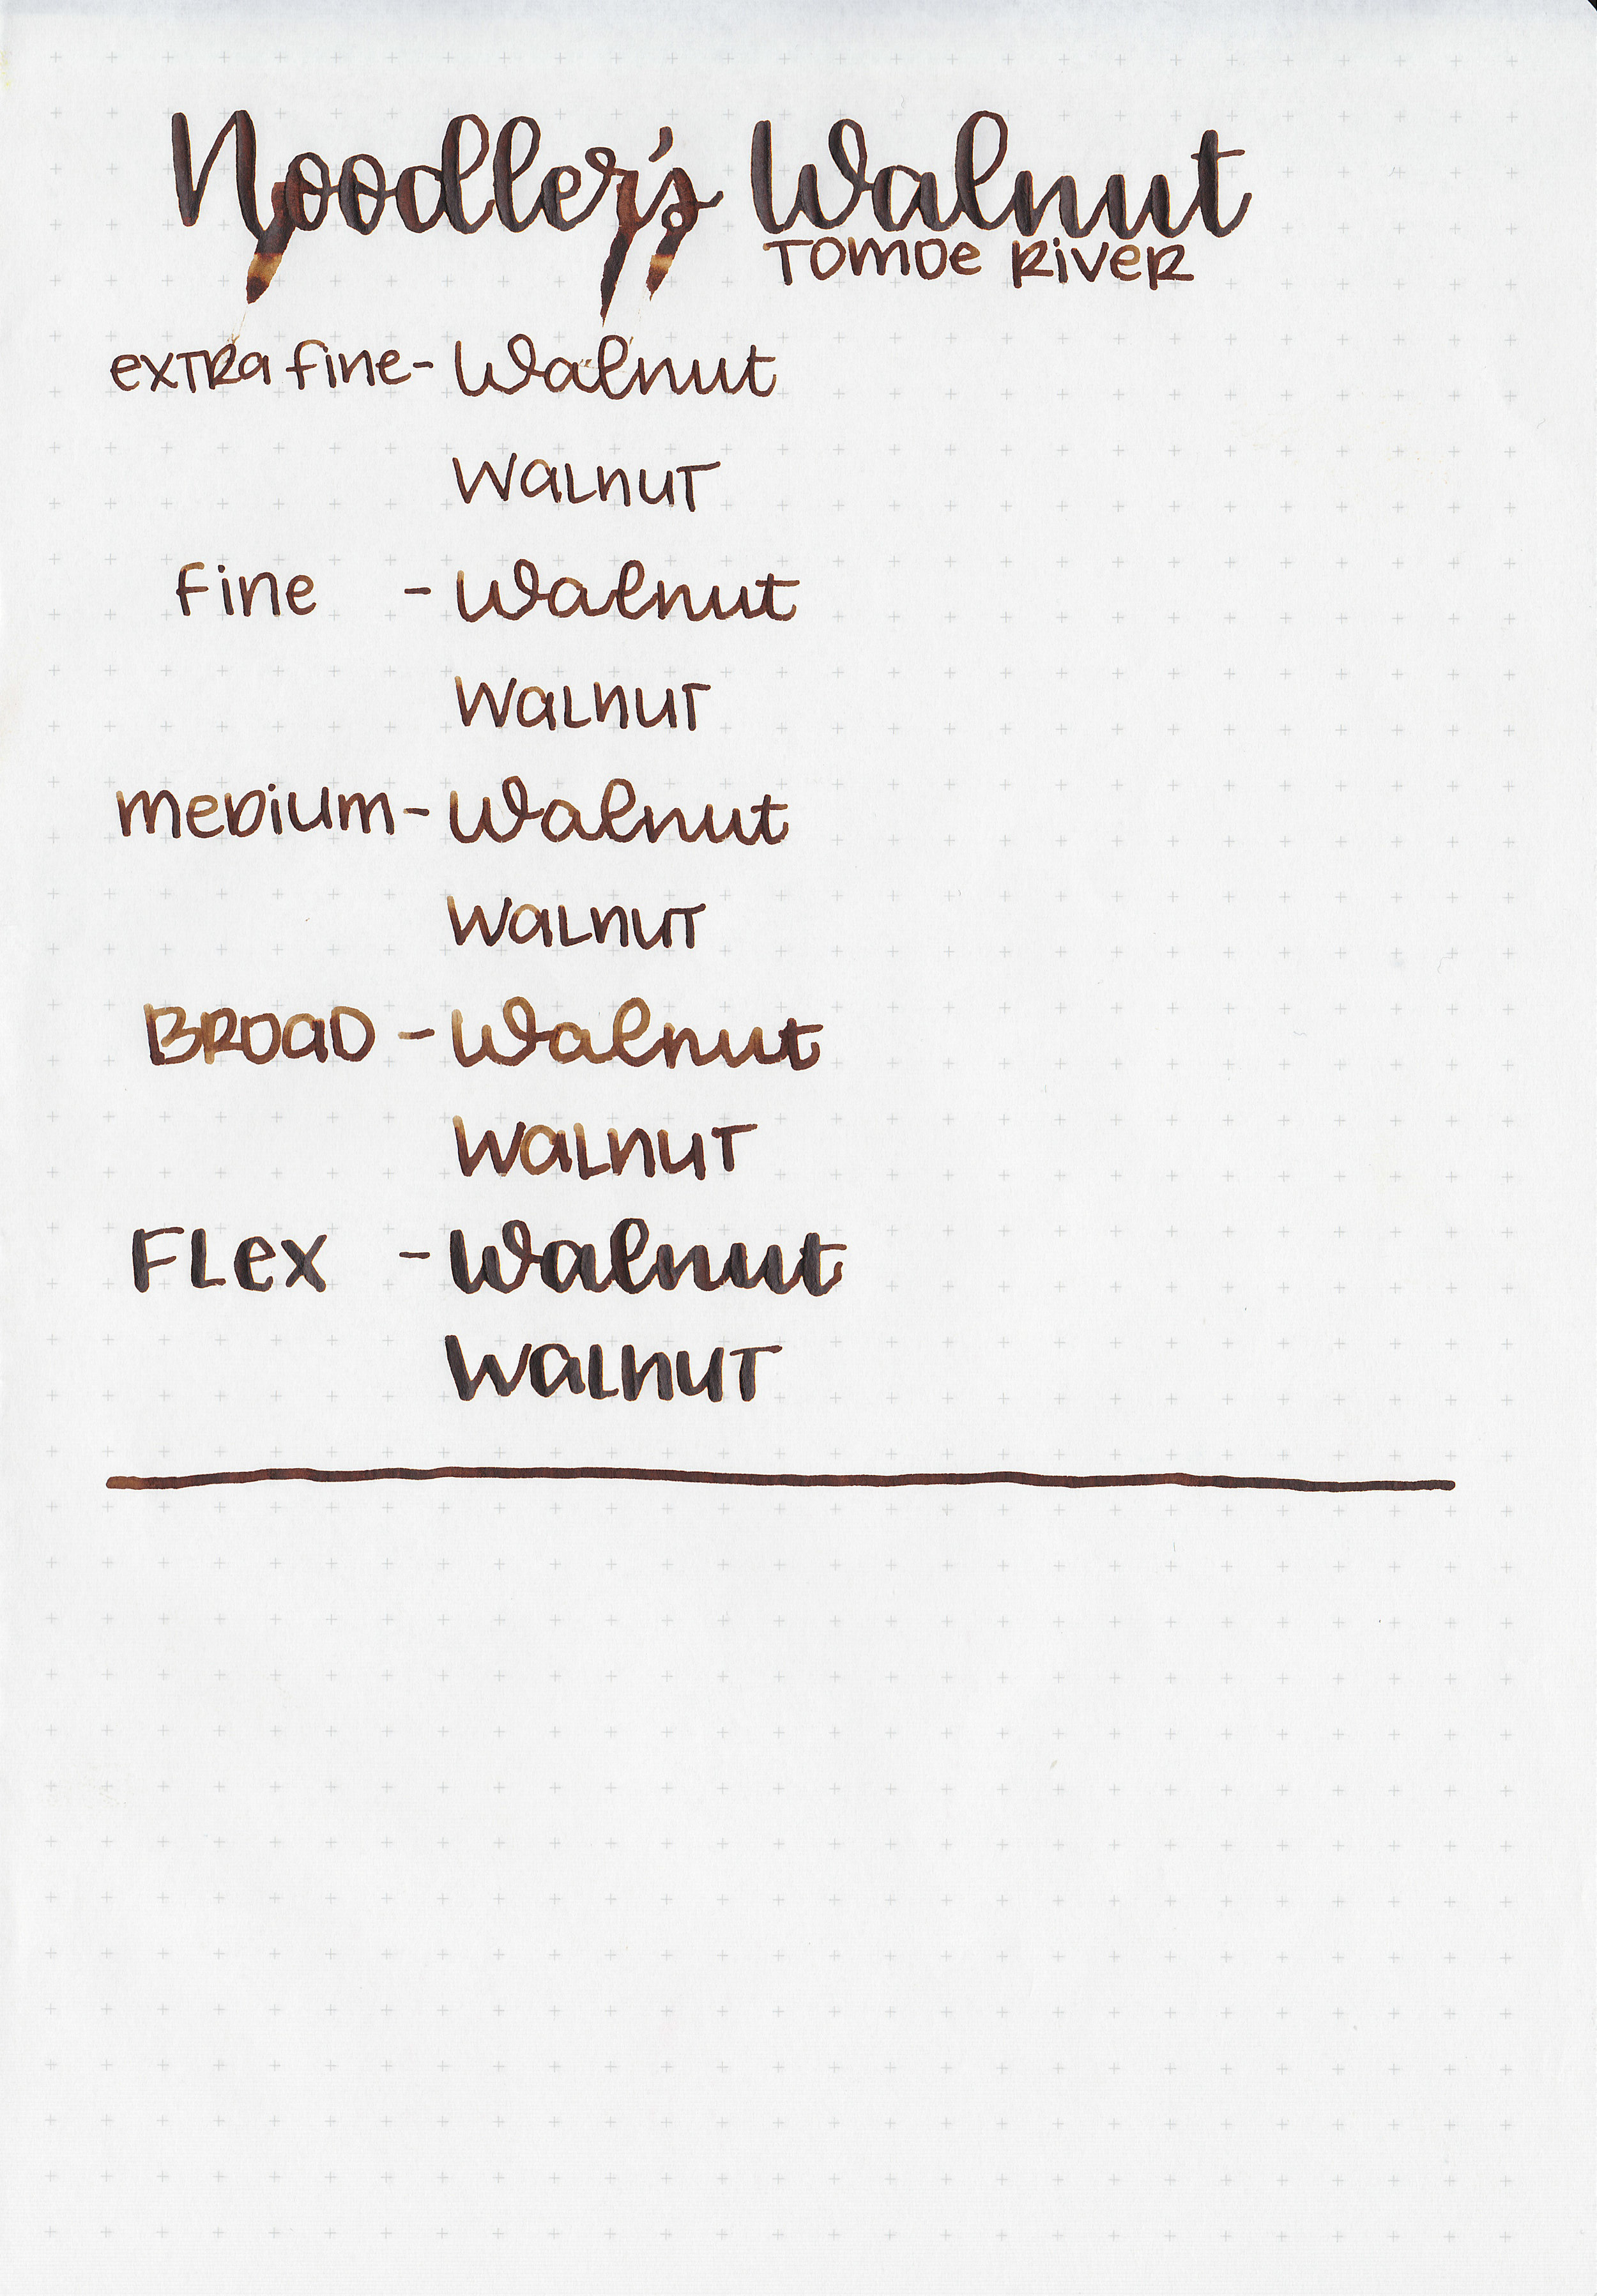 Noodler's Walnut
TOMOE RIVER
extra fine - Walnut
WaLnuT
fine - Walnut
WaLnuT
meDium - Walnut
WaLnuT
BROaD - Walnut
WaLnuT
FLex - Walnut
WaLnuT